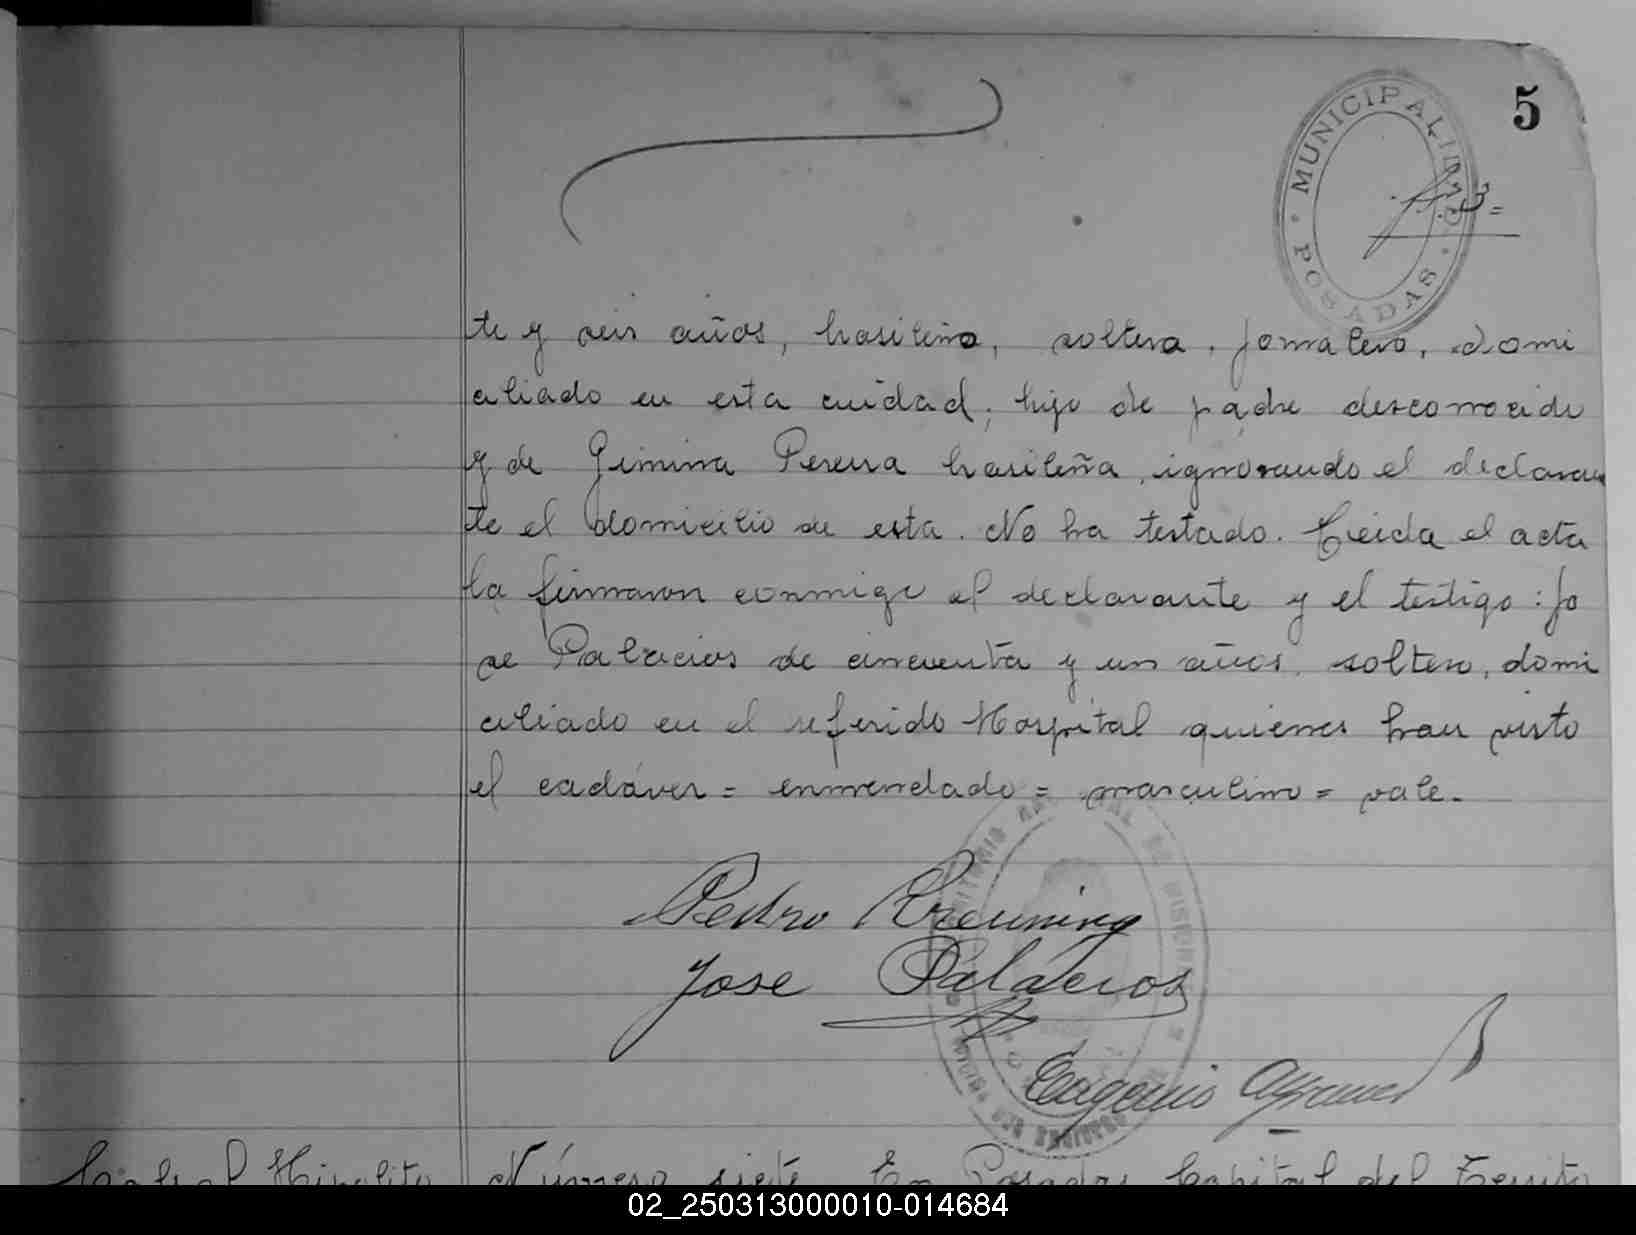 5
MUNICIPALIDAD
POSADAS
te y seis años, brasilero, soltero, jornalero, domi
ciliado en esta ciudad, hijo de padre desconocido
y de Gimina Pereira brasileña, ignorando el declaran
te el domicilio de esta. No ha testado. Leida el acta
la firmaron conmigo el declarante y el testigo: Jo
se Palacios de cincuenta y un años, soltero, domi
ciliado en el referido Hospital quienes han visto
el cadáver = enmendado = masculino = vale.
Pedro
Jose Palacios
Eugenio
Cabral Hipolito Número siete En Posadas Capital del Territo
02_250313000010-014684